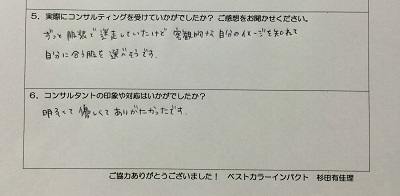 5．実際にコンサルティングを受けていかがでしたか？ ご感想をお聞かせください。
ずっと服装で迷走していたけど客観的な自分のイメージを知れて
自分に合う服を選べそうです．
6．コンサルタントの印象や対応はいかがでしたか？
明るくて優しくてありがたかったです．
ご協力ありがとうございました！ ベストカラーインパクト 杉田有佳理